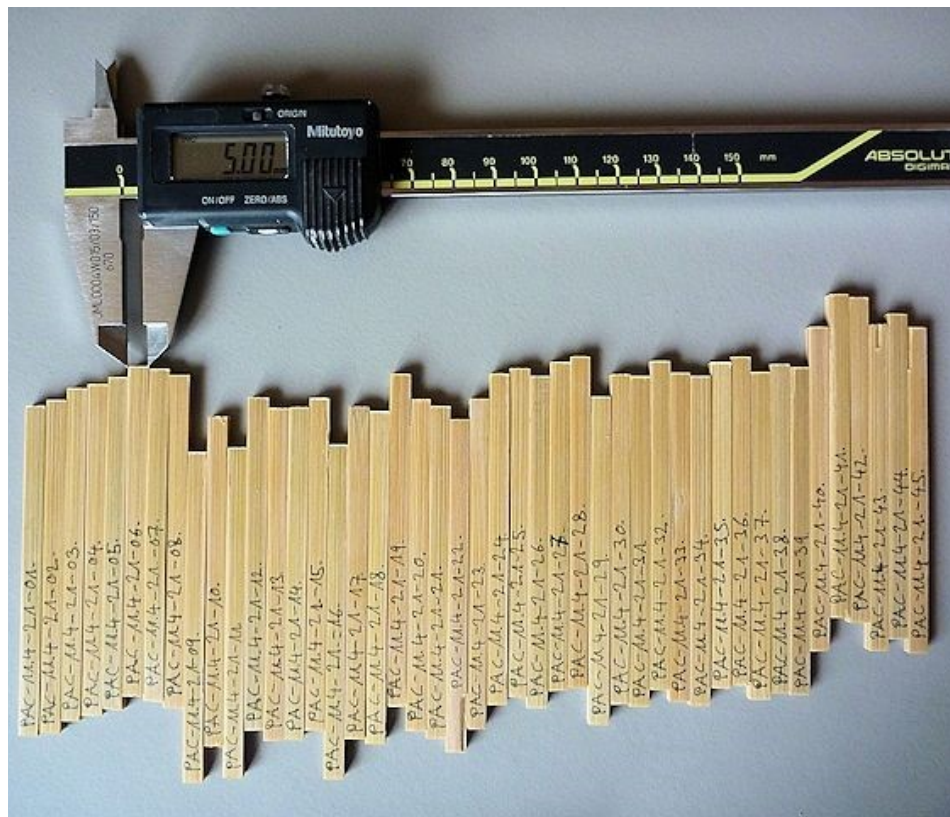 ORIGIN
Mitutoyo
5.00
ON/OFF ZERO/ABS
0 70 80 90 100 110 120 130 140 150 mm
ABSOLUT
DIGIMA
670
PAC-114-21-01.
PAC-114-21-02.
PAC-114-21-03.
PAC-114-21-04.
PAC-114-21-05.
PAC-114-21-06.
PAC-114-21-07.
PAC-114-21-08.
PAC-114-21-09.
PAC-114-21-10.
PAC-114-21-11.
PAC-114-21-12.
PAC-114-21-13.
PAC-114-21-14.
PAC-114-21-15.
PAC-114-21-16.
PAC-114-21-17.
PAC-114-21-18.
PAC-114-21-19.
PAC-114-21-20.
PAC-114-21-21.
PAC-114-21-22.
PAC-114-21-23.
PAC-114-21-24.
PAC-114-21-25.
PAC-114-21-26.
PAC-114-21-27.
PAC-114-21-28.
PAC-114-21-29.
PAC-114-21-30.
PAC-114-21-31.
PAC-114-21-32.
PAC-114-21-33.
PAC-114-21-34.
PAC-114-21-35.
PAC-114-21-36.
PAC-114-21-37.
PAC-114-21-38.
PAC-114-21-39
PAC-114-21-40.
PAC-114-21-41.
PAC-114-21-42.
PAC-114-21-43.
PAC-114-21-44.
PAC-114-21-45.